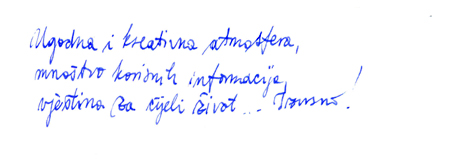 Ugodna i kreativna atmosfera,
mnoštvo korisnih informacija,
vještina za cijeli život ... Izvrsno!